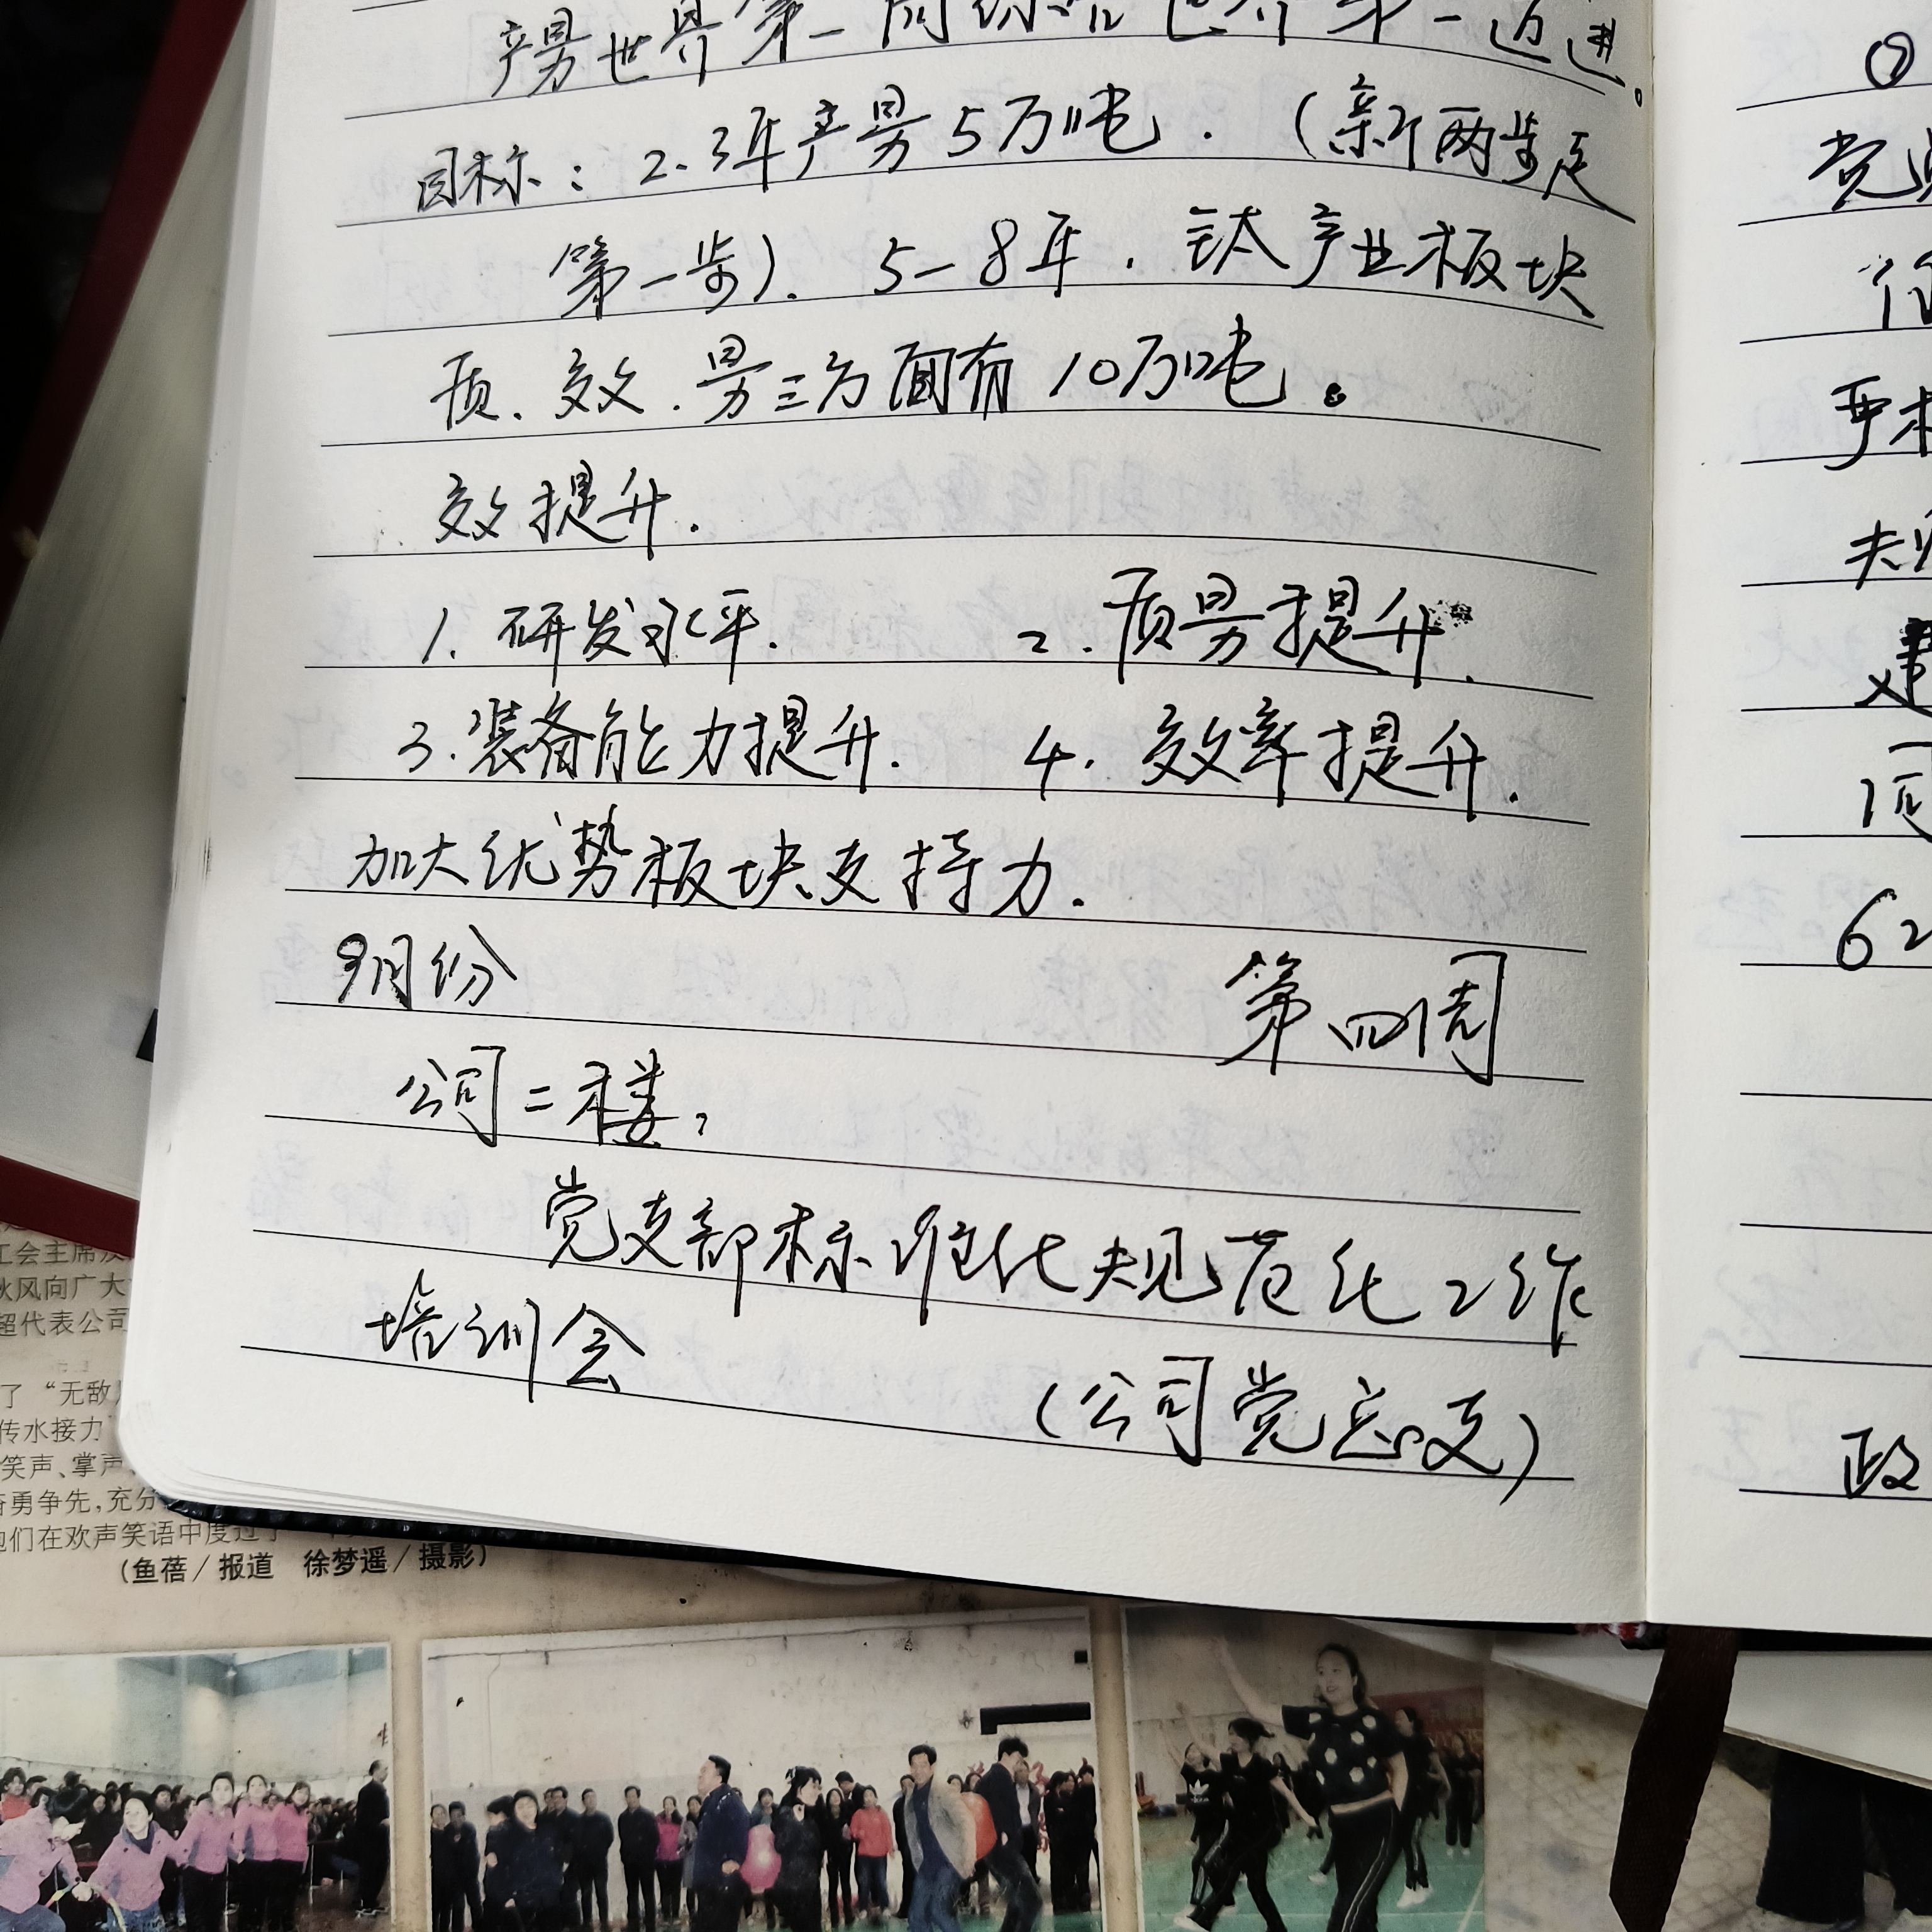 产量世界第一向综合世界第一迈进。
目标：2-3年产量5万吨．（新两步走
第一步）．5-8年．钛产业板块
质．效．量三方面有10万吨。
效提升．
1. 研发水平．　2．质量提升．
3．装备能力提升．　4．效率提升．
加大优势板块支持力．
9月份　第四周
公司二楼，
党支部标准化规范化工作
培训会
（公司党总支）
②
党
严
建
62
政
工会主席
秋风向广大
超代表公司
了“无敌
传水接力
笑声、掌声
奋勇争先，充分
他们在欢声笑语中度过了
（鱼蓓／报道　徐梦遥／摄影）